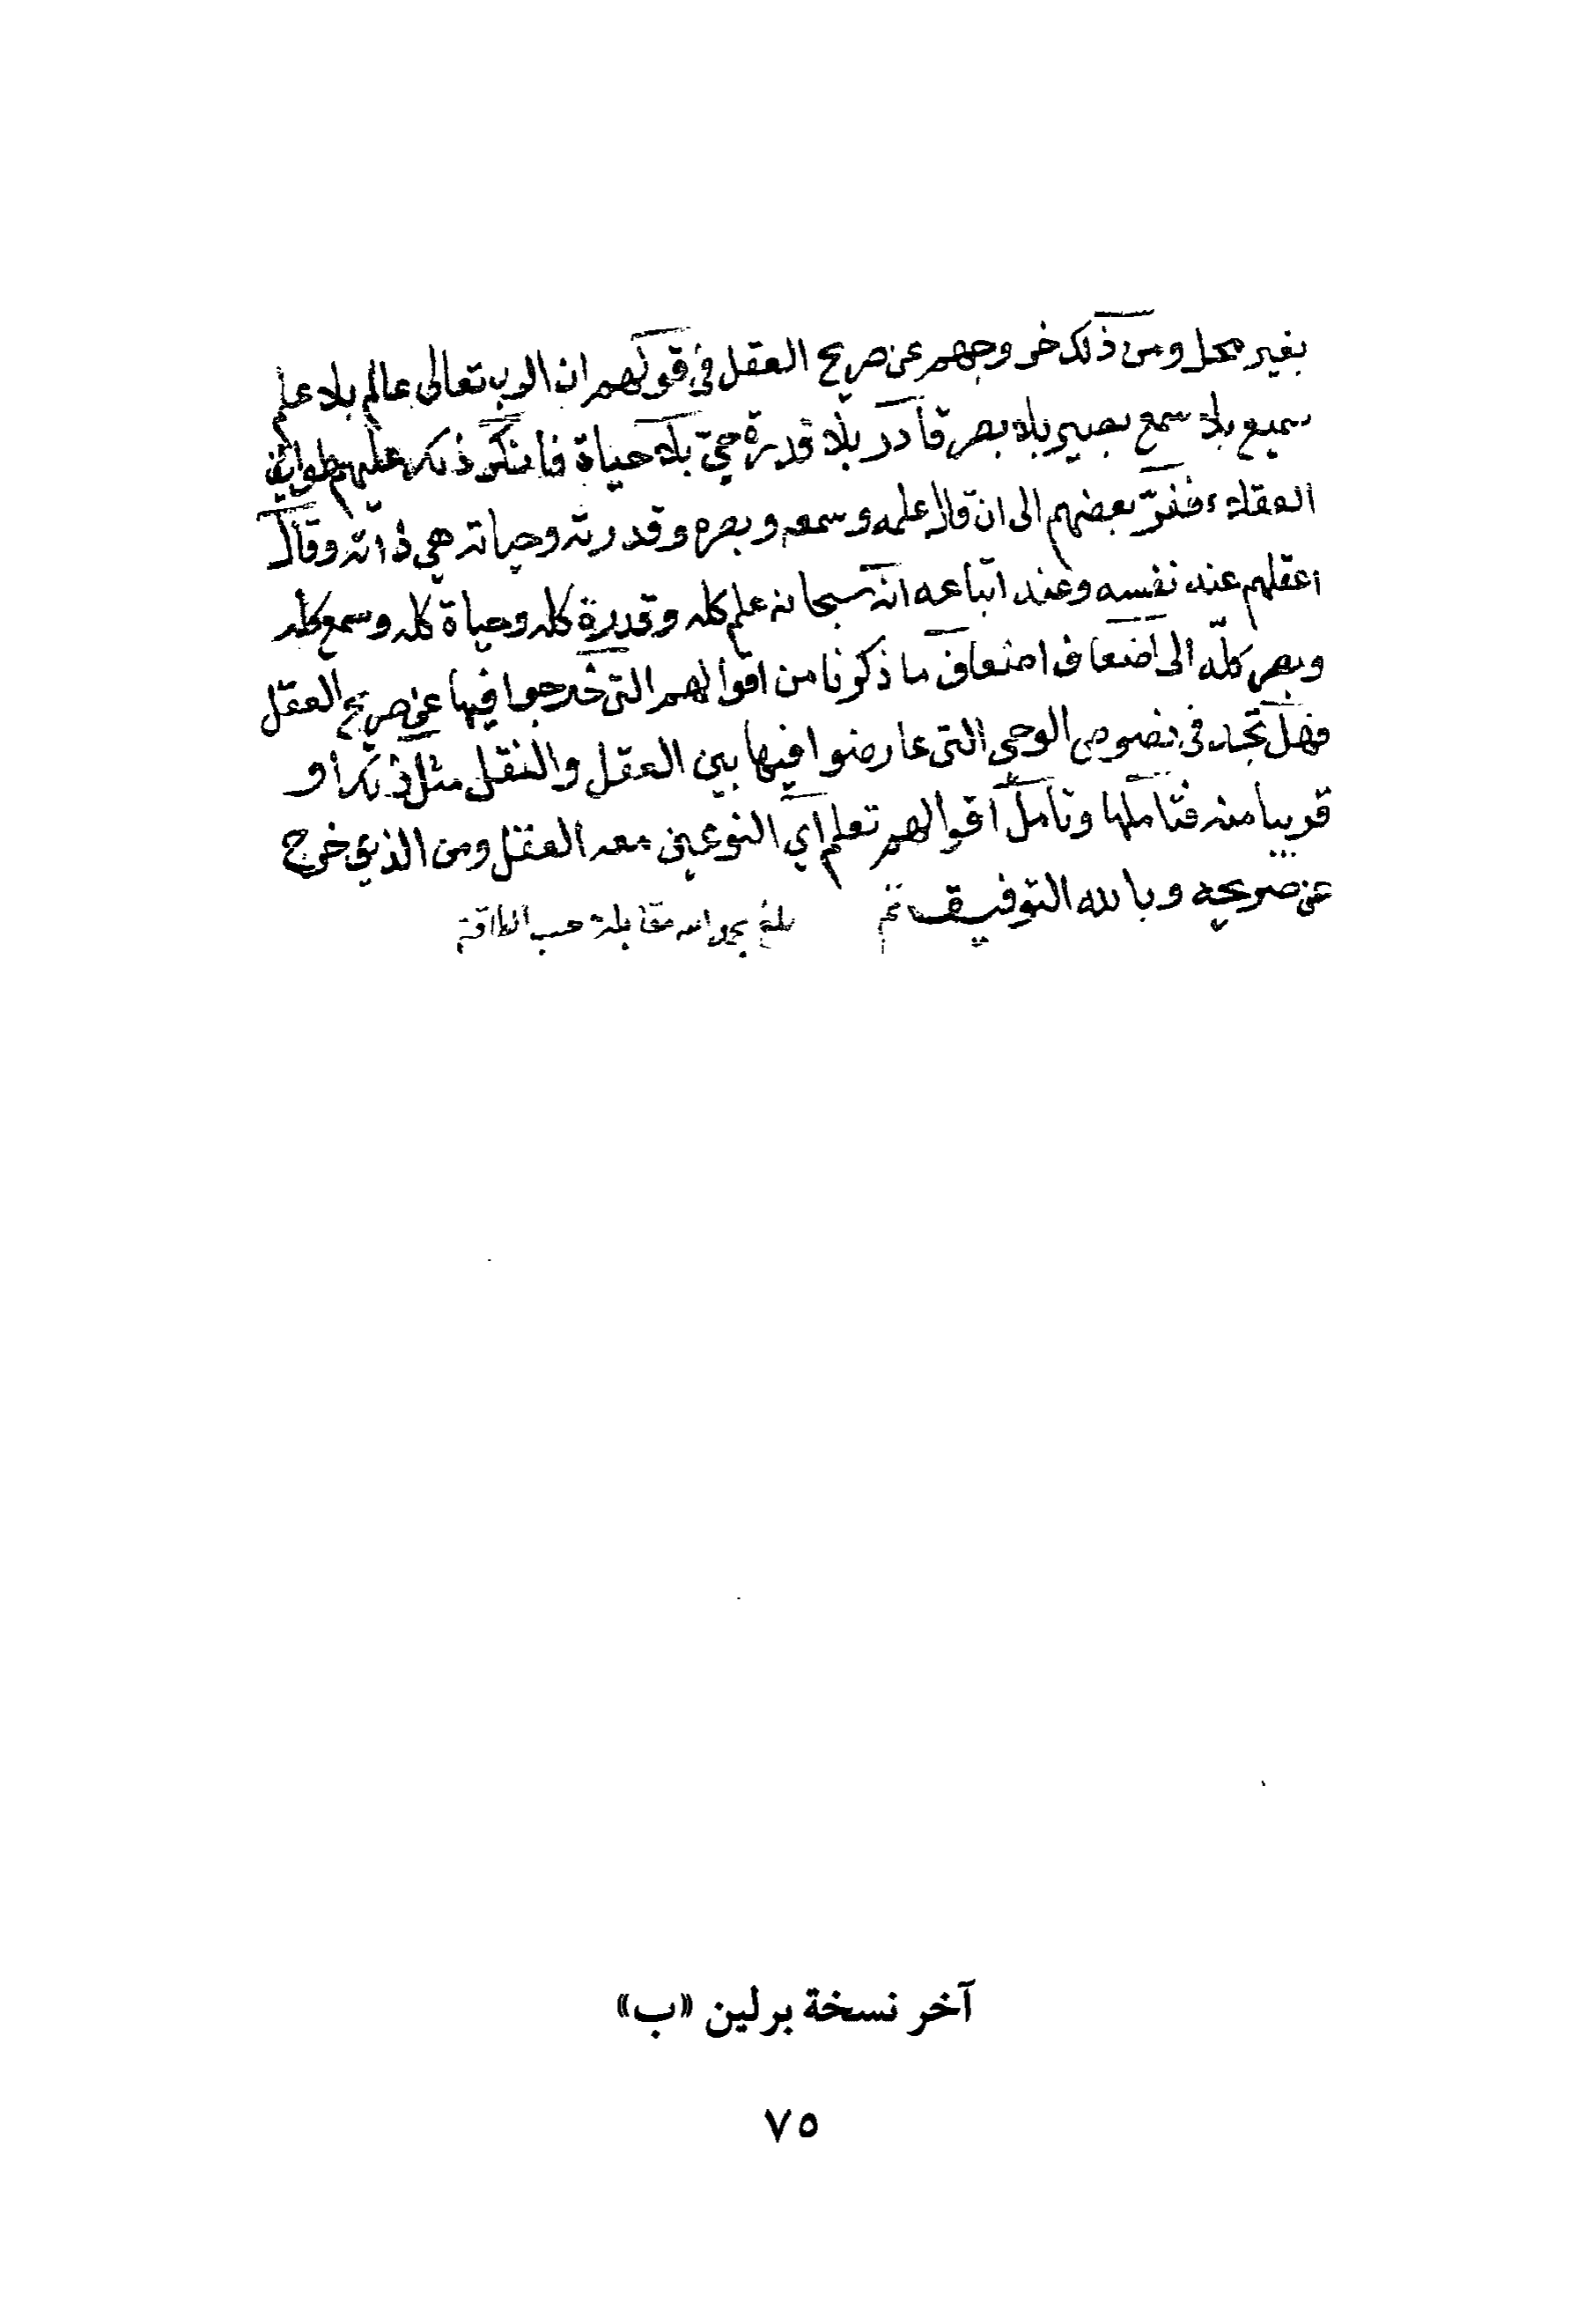 بغير محل ومن ذلك خروجهم عن صريح العقل في قولهم ان الرب تعالى عالم بلا علم
سميع بلا سمع بصير بلا بصر قادر بلا قدرة حيّ بلا حياة فانكر ذلك عليهم طوائف
العقلاء ففرّ بعضهم الى ان قال علمه وسمعه وبصره وقدرته وحياته هي ذاته وقال
اعقلهم عند نفسه وعند اتباعه انه سبحانه علم كله وقدرة كله وحياة كله وسمع كله
وبصر كلّه الى اضعاف اضعاف ما ذكرنا من اقوالهم التي خرجوا فيها عن صريح العقل
فهل تجد في نصوص الوحي التي عارضوا فيها بين العقل والنقل مثل ذلك او
قريبا منه فتاملها وتامل اقوالهم تعلم اي النوعين معه العقل ومن الذي خرج
عن صريحه وبالله التوفيق تم بلغ بحمد الله مقابلة حسب الطاقة
آخر نسخة برلين «ب»
٧٥